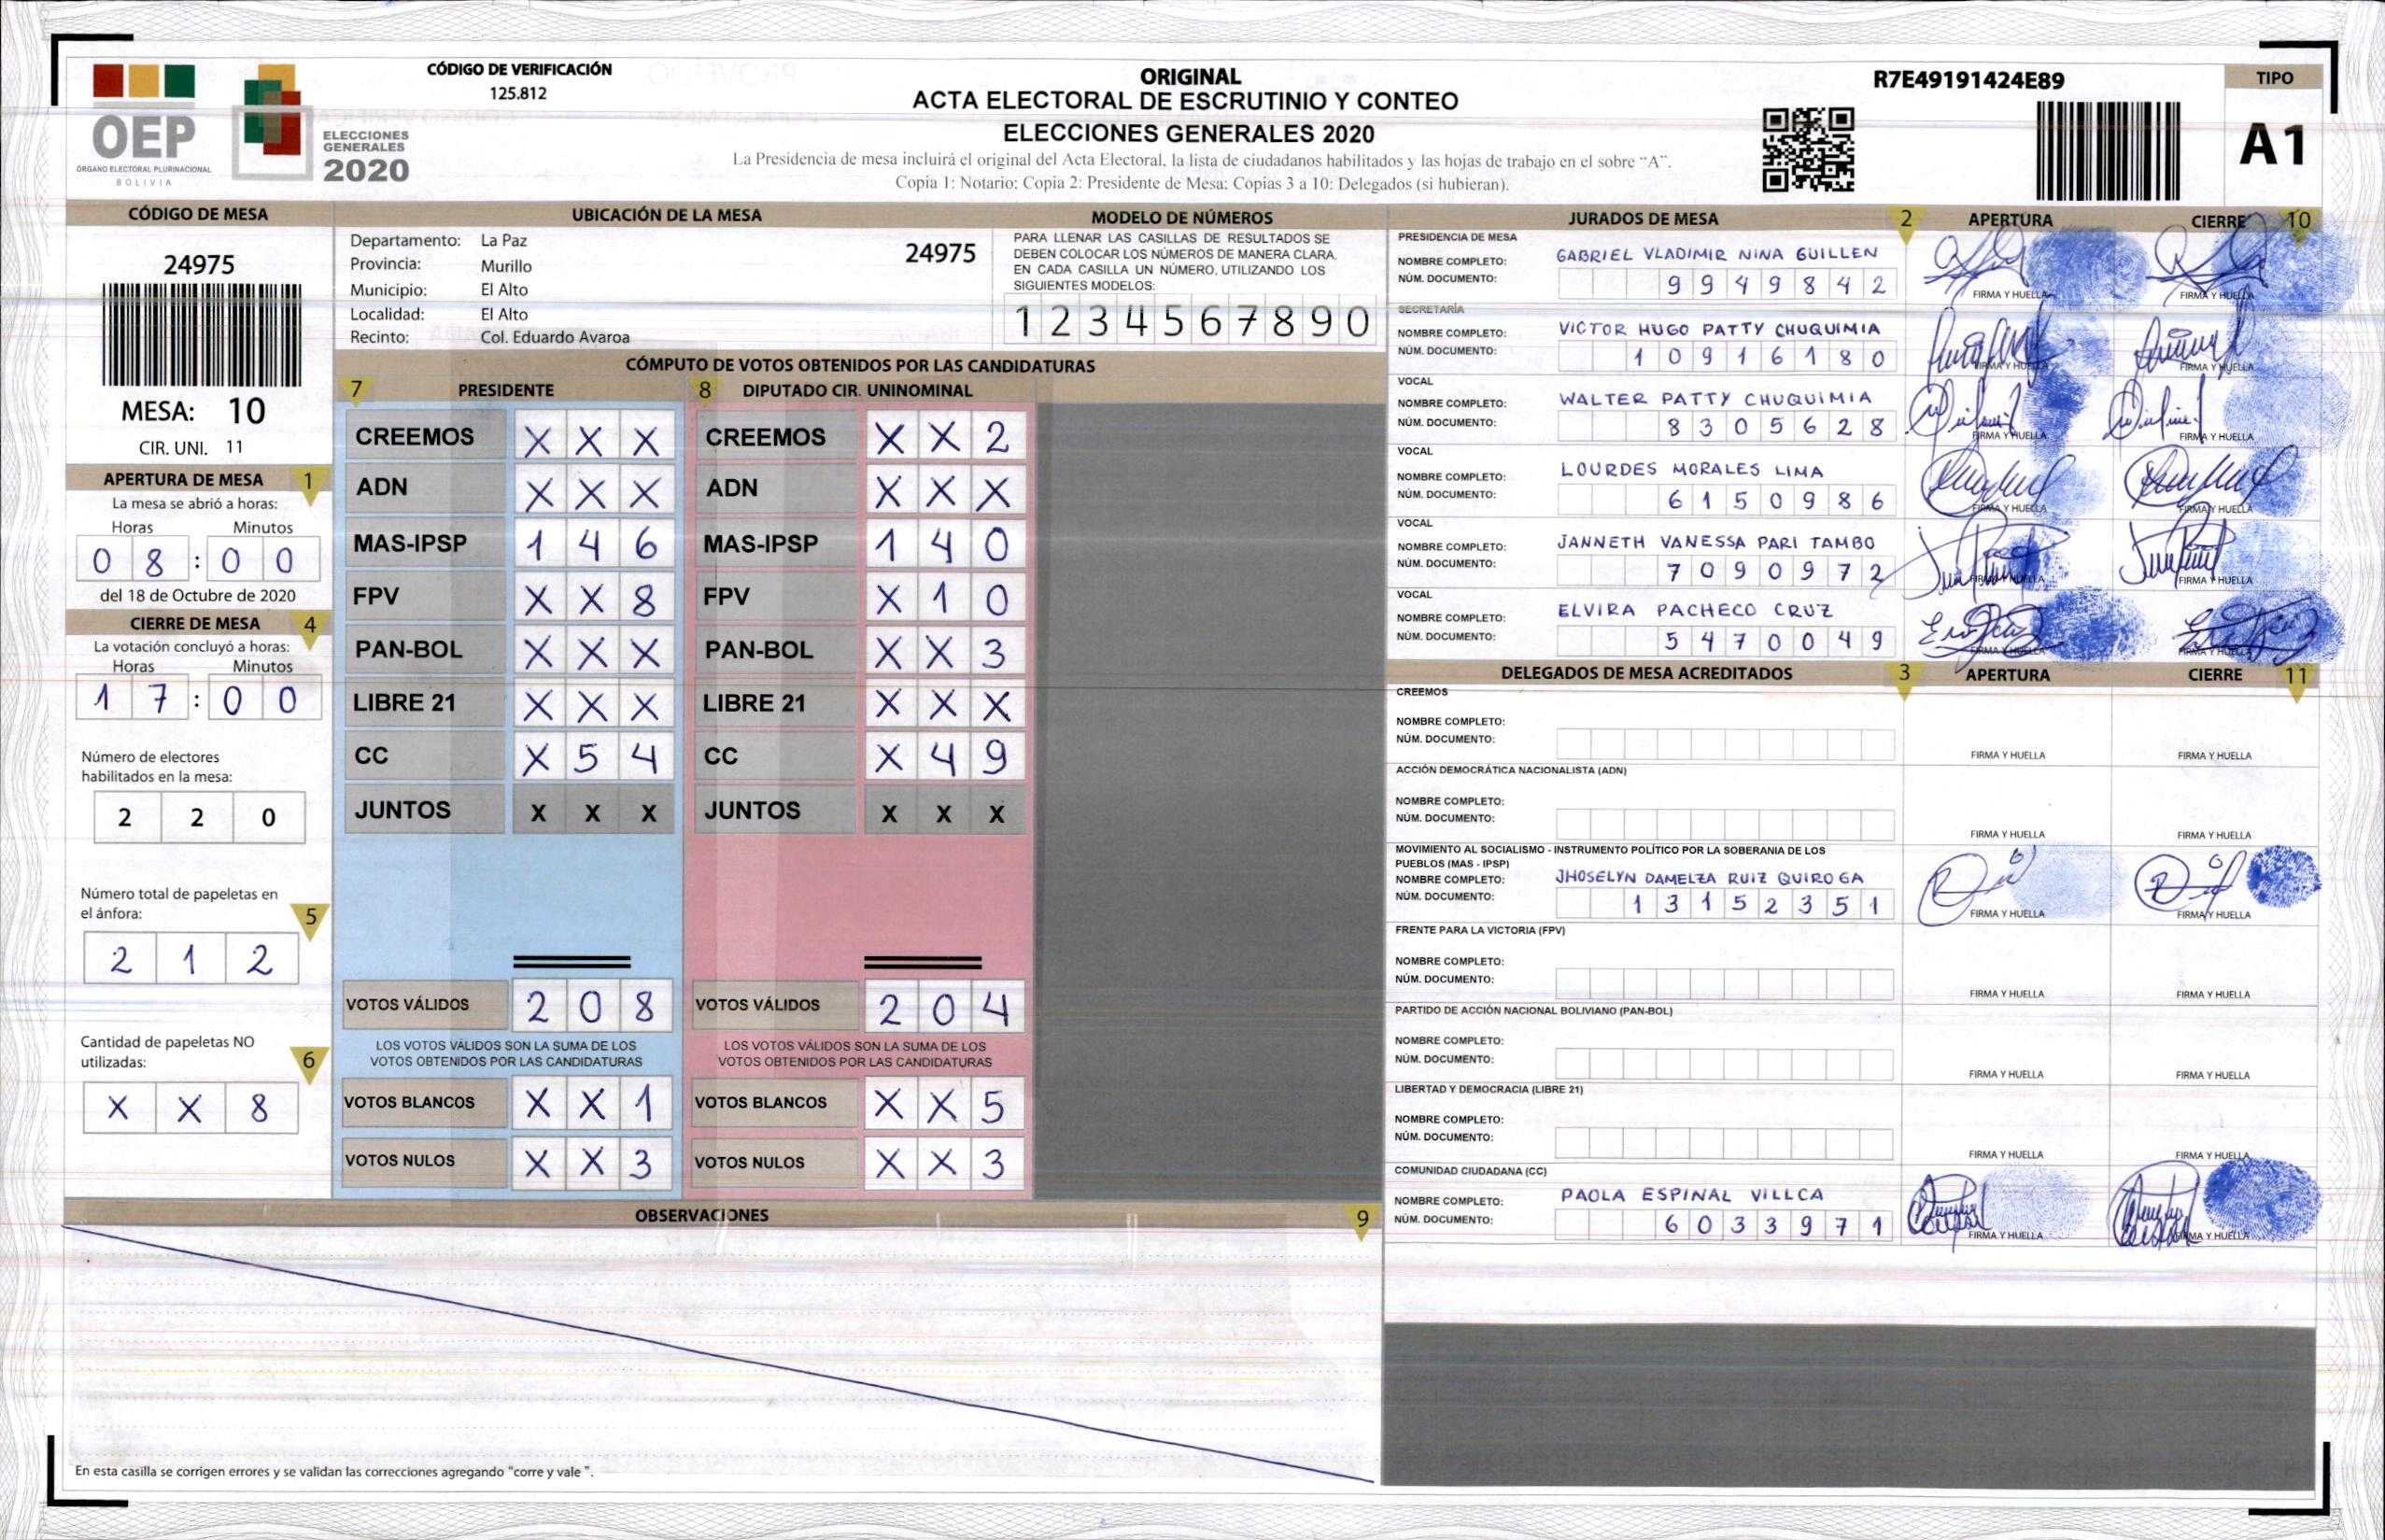 OEP
ÓRGANO ELECTORAL PLURINACIONAL
BOLIVIA
ELECCIONES
GENERALES
2020
CÓDIGO DE VERIFICACIÓN
125.812
ORIGINAL
ACTA ELECTORAL DE ESCRUTINIO Y CONTEO
ELECCIONES GENERALES 2020
La Presidencia de mesa incluirá el original del Acta Electoral, la lista de ciudadanos habilitados y las hojas de trabajo en el sobre "A".
Copia 1: Notario; Copia 2: Presidente de Mesa; Copias 3 a 10: Delegados (si hubieran).
R7E49191424E89
TIPO
A1
CÓDIGO DE MESA
24975
MESA: 10
CIR. UNI. 11
APERTURA DE MESA 1
La mesa se abrió a horas:
Horas Minutos
0 8 : 0 0
del 18 de Octubre de 2020
CIERRE DE MESA 4
La votación concluyó a horas:
Horas Minutos
1 7 : 0 0
Número de electores
habilitados en la mesa:
2 2 0
Número total de papeletas en
el ánfora: 5
2 1 2
Cantidad de papeletas NO
utilizadas: 6
X X 8
UBICACIÓN DE LA MESA
Departamento: La Paz 24975
Provincia: Murillo
Municipio: El Alto
Localidad: El Alto
Recinto: Col. Eduardo Avaroa
MODELO DE NÚMEROS
PARA LLENAR LAS CASILLAS DE RESULTADOS SE
DEBEN COLOCAR LOS NÚMEROS DE MANERA CLARA.
EN CADA CASILLA UN NÚMERO, UTILIZANDO LOS
SIGUIENTES MODELOS:
1 2 3 4 5 6 7 8 9 0
CÓMPUTO DE VOTOS OBTENIDOS POR LAS CANDIDATURAS
7 PRESIDENTE 8 DIPUTADO CIR. UNINOMINAL
CREEMOS X X X CREEMOS X X 2
ADN X X X ADN X X X
MAS-IPSP 1 4 6 MAS-IPSP 1 4 0
FPV X X 8 FPV X 1 0
PAN-BOL X X X PAN-BOL X X 3
LIBRE 21 X X X LIBRE 21 X X X
CC X 5 4 CC X 4 9
JUNTOS X X X JUNTOS X X X
VOTOS VÁLIDOS 2 0 8 VOTOS VÁLIDOS 2 0 4
LOS VOTOS VÁLIDOS SON LA SUMA DE LOS LOS VOTOS VÁLIDOS SON LA SUMA DE LOS
VOTOS OBTENIDOS POR LAS CANDIDATURAS VOTOS OBTENIDOS POR LAS CANDIDATURAS
VOTOS BLANCOS X X 1 VOTOS BLANCOS X X 5
VOTOS NULOS X X 3 VOTOS NULOS X X 3
OBSERVACIONES 9
En esta casilla se corrigen errores y se validan las correcciones agregando "corre y vale ".
JURADOS DE MESA 2 APERTURA CIERRE 10
PRESIDENCIA DE MESA
NOMBRE COMPLETO: GABRIEL VLADIMIR NINA GUILLEN
NÚM. DOCUMENTO: 9 9 4 9 8 4 2
FIRMA Y HUELLA FIRMA Y HUELLA
SECRETARÍA
NOMBRE COMPLETO: VICTOR HUGO PATTY CHUQUIMIA
NÚM. DOCUMENTO: 1 0 9 1 6 1 8 0
FIRMA Y HUELLA FIRMA Y HUELLA
VOCAL
NOMBRE COMPLETO: WALTER PATTY CHUQUIMIA
NÚM. DOCUMENTO: 8 3 0 5 6 2 8
FIRMA Y HUELLA FIRMA Y HUELLA
VOCAL
NOMBRE COMPLETO: LOURDES MORALES LIMA
NÚM. DOCUMENTO: 6 1 5 0 9 8 6
FIRMA Y HUELLA FIRMA Y HUELLA
VOCAL
NOMBRE COMPLETO: JANNETH VANESSA PARI TAMBO
NÚM. DOCUMENTO: 7 0 9 0 9 7 2
FIRMA Y HUELLA FIRMA Y HUELLA
VOCAL
NOMBRE COMPLETO: ELVIRA PACHECO CRUZ
NÚM. DOCUMENTO: 5 4 7 0 0 4 9
FIRMA Y HUELLA FIRMA Y HUELLA
DELEGADOS DE MESA ACREDITADOS 3 APERTURA CIERRE 11
CREEMOS
NOMBRE COMPLETO:
NÚM. DOCUMENTO:
FIRMA Y HUELLA FIRMA Y HUELLA
ACCIÓN DEMOCRÁTICA NACIONALISTA (ADN)
NOMBRE COMPLETO:
NÚM. DOCUMENTO:
FIRMA Y HUELLA FIRMA Y HUELLA
MOVIMIENTO AL SOCIALISMO - INSTRUMENTO POLÍTICO POR LA SOBERANIA DE LOS
PUEBLOS (MAS - IPSP)
NOMBRE COMPLETO: JHOSELYN DAMELZA RUIZ QUIROGA
NÚM. DOCUMENTO: 1 3 1 5 2 3 5 1
FIRMA Y HUELLA FIRMA Y HUELLA
FRENTE PARA LA VICTORIA (FPV)
NOMBRE COMPLETO:
NÚM. DOCUMENTO:
FIRMA Y HUELLA FIRMA Y HUELLA
PARTIDO DE ACCIÓN NACIONAL BOLIVIANO (PAN-BOL)
NOMBRE COMPLETO:
NÚM. DOCUMENTO:
FIRMA Y HUELLA FIRMA Y HUELLA
LIBERTAD Y DEMOCRACIA (LIBRE 21)
NOMBRE COMPLETO:
NÚM. DOCUMENTO:
FIRMA Y HUELLA FIRMA Y HUELLA
COMUNIDAD CIUDADANA (CC)
NOMBRE COMPLETO: PAOLA ESPINAL VILLCA
NÚM. DOCUMENTO: 6 0 3 3 9 7 1
FIRMA Y HUELLA FIRMA Y HUELLA